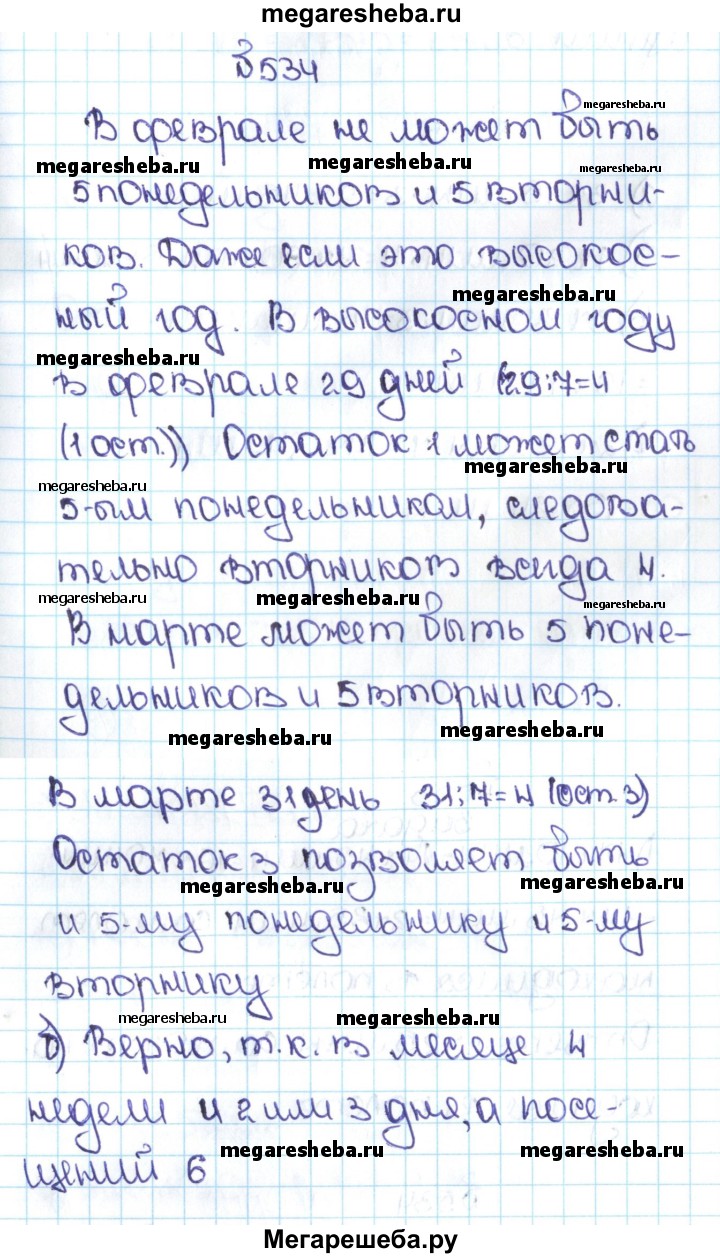 megaresheba.ru
№534
В феврале не может быть
megaresheba.ru
megaresheba.ru megaresheba.ru megaresheba.ru
5 понедельников и 5 вторни-
ков. Даже если это высокос-
megaresheba.ru
ный год. В высокосном году
megaresheba.ru
в феврале 29 дней (29:7=4
(1 ост.)) Остаток 1 может стать
megaresheba.ru
megaresheba.ru
5-ым понедельником, следова-
тельно вторников всегда 4.
megaresheba.ru megaresheba.ru megaresheba.ru
В марте может быть 5 поне-
дельников и 5 вторников.
megaresheba.ru
В марте 31 день 31:7=4 (ост.3)
Остаток 3 позволяет быть
megaresheba.ru megaresheba.ru
и 5-му понедельнику и 5-му
вторнику
megaresheba.ru megaresheba.ru
б) Верно, т.к. в месяце 4
недели и 2 или 3 дня, а посе-
щений 6
megaresheba.ru megaresheba.ru
Мегарешеба.ру